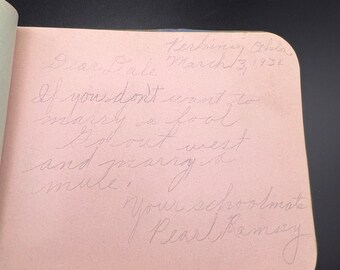 March 3, 1921
Dear Gale
If you don't want to
marry a fool
Go out west
and marry a
mule.
Your schoolmate
Pearl Ramsey